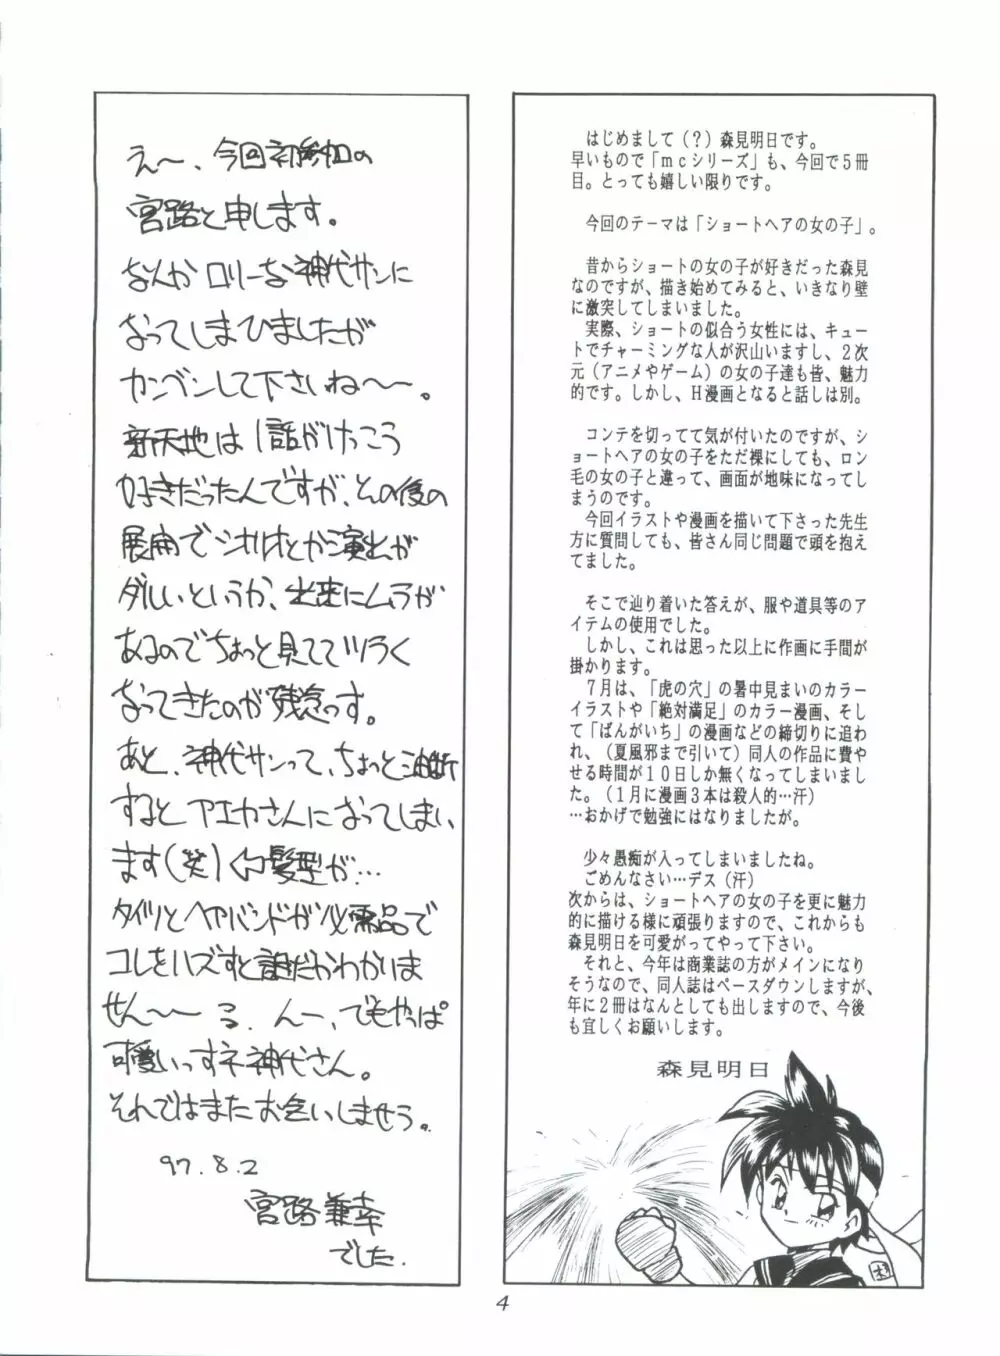 え〜、今回初参加の
宮路と申します。
なんかロリーな神代サンに
なってしまひましたが
カンベンして下さいね〜〜。
新天地は1話がけっこう
好きだったんですが、その後の
展開でシナリオとか演出が
ダルいというか、出来にムラが
あるのでちょっと見ててツラく
なってきたのが残念っす。
あと、神代サンって、ちょっと油断
するとアエカさんになってしまい
ます(笑)髪型が…
タイツとヘアバンドが必需品で
コレをハズすと誰だかわかりま
せん〜〜 る、んー、でもやっぱ
可愛いっすネ神代さん。
それではまたお会いしませう。
97.8.2
宮路兼幸
でした.
はじめまして(?)森見明日です。
早いもので「mcシリーズ」も、今回で5冊
目。とっても嬉しい限りです。
今回のテーマは「ショートヘアの女の子」。
昔からショートの女の子が好きだった森見
なのですが、描き始めてみると、いきなり壁
に激突してしまいました。
実際、ショートの似合う女性には、キュー
トでチャーミングな人が沢山いますし、2次
元(アニメやゲーム)の女の子達も皆、魅力
的です。しかし、H漫画となると話しは別。
コンテを切ってて気が付いたのですが、シ
ョートヘアの女の子をただ裸にしても、ロン
毛の女の子と違って、画面が地味になってし
まうのです。
今回イラストや漫画を描いて下さった先生
方に質問しても、皆さん同じ問題で頭を抱え
てました。
そこで辿り着いた答えが、服や道具等のア
イテムの使用でした。
しかし、これは思った以上に作画に手間が
掛かります。
7月は、「虎の穴」の暑中見まいのカラー
イラストや「絶対満足」のカラー漫画、そし
て「ばんがいち」の漫画などの締切りに追わ
れ、(夏風邪まで引いて)同人の作品に費や
せる時間が10日しか無くなってしまいまし
た。(1月に漫画3本は殺人的…汗)
…おかげで勉強にはなりましたが。
少々愚痴が入ってしまいましたね。
ごめんなさい…デス(汗)
次からは、ショートヘアの女の子を更に魅力
的に描ける様に頑張りますので、これからも
森見明日を可愛がってやって下さい。
それと、今年は商業誌の方がメインになり
そうなので、同人誌はペースダウンしますが、
年に2冊はなんとしても出しますので、今後
も宜しくお願いします。
森見明日
4